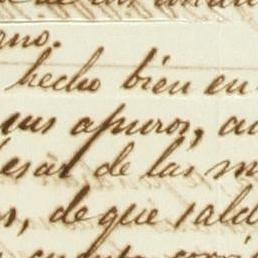 ano.
hecho bien en
sus apuros, cu
pesar de las m
s, de que sald